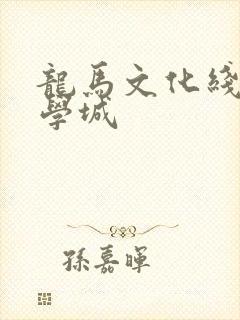 龍馬文化綫
學城
孫嘉暉